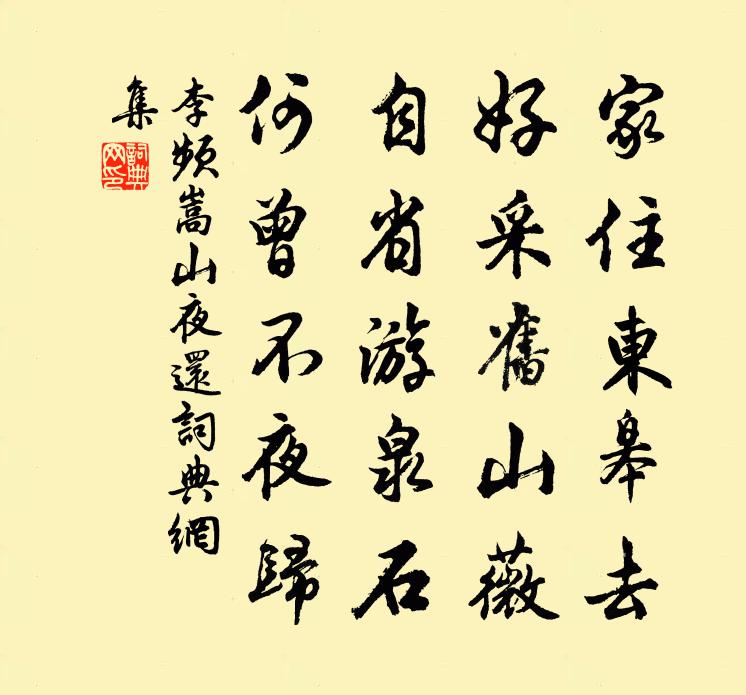 家住東皋去
好采舊山薇
自省游泉石
何曾不夜歸
李頻嵩山夜還詞典網
集
詞典
网印